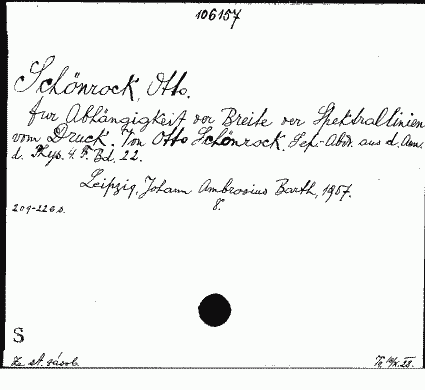 106157
Schönrock, Otto.
Zur Abhängigkeit der Breite der Spektrallinien
vom Druck. Von Otto Schönrock. Sep.-Abdr. aus d. Ann.
d. Phys. 4. F. Bd. 22.
Leipzig, Johann Ambrosius Barth, 1907.
209-226 s. 8.
S